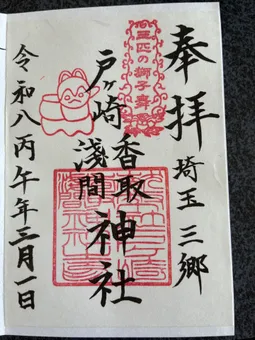 奉拝
埼玉三郷
三匹の獅子舞
戸ヶ崎香取
浅間神社
令和八丙午年三月一日